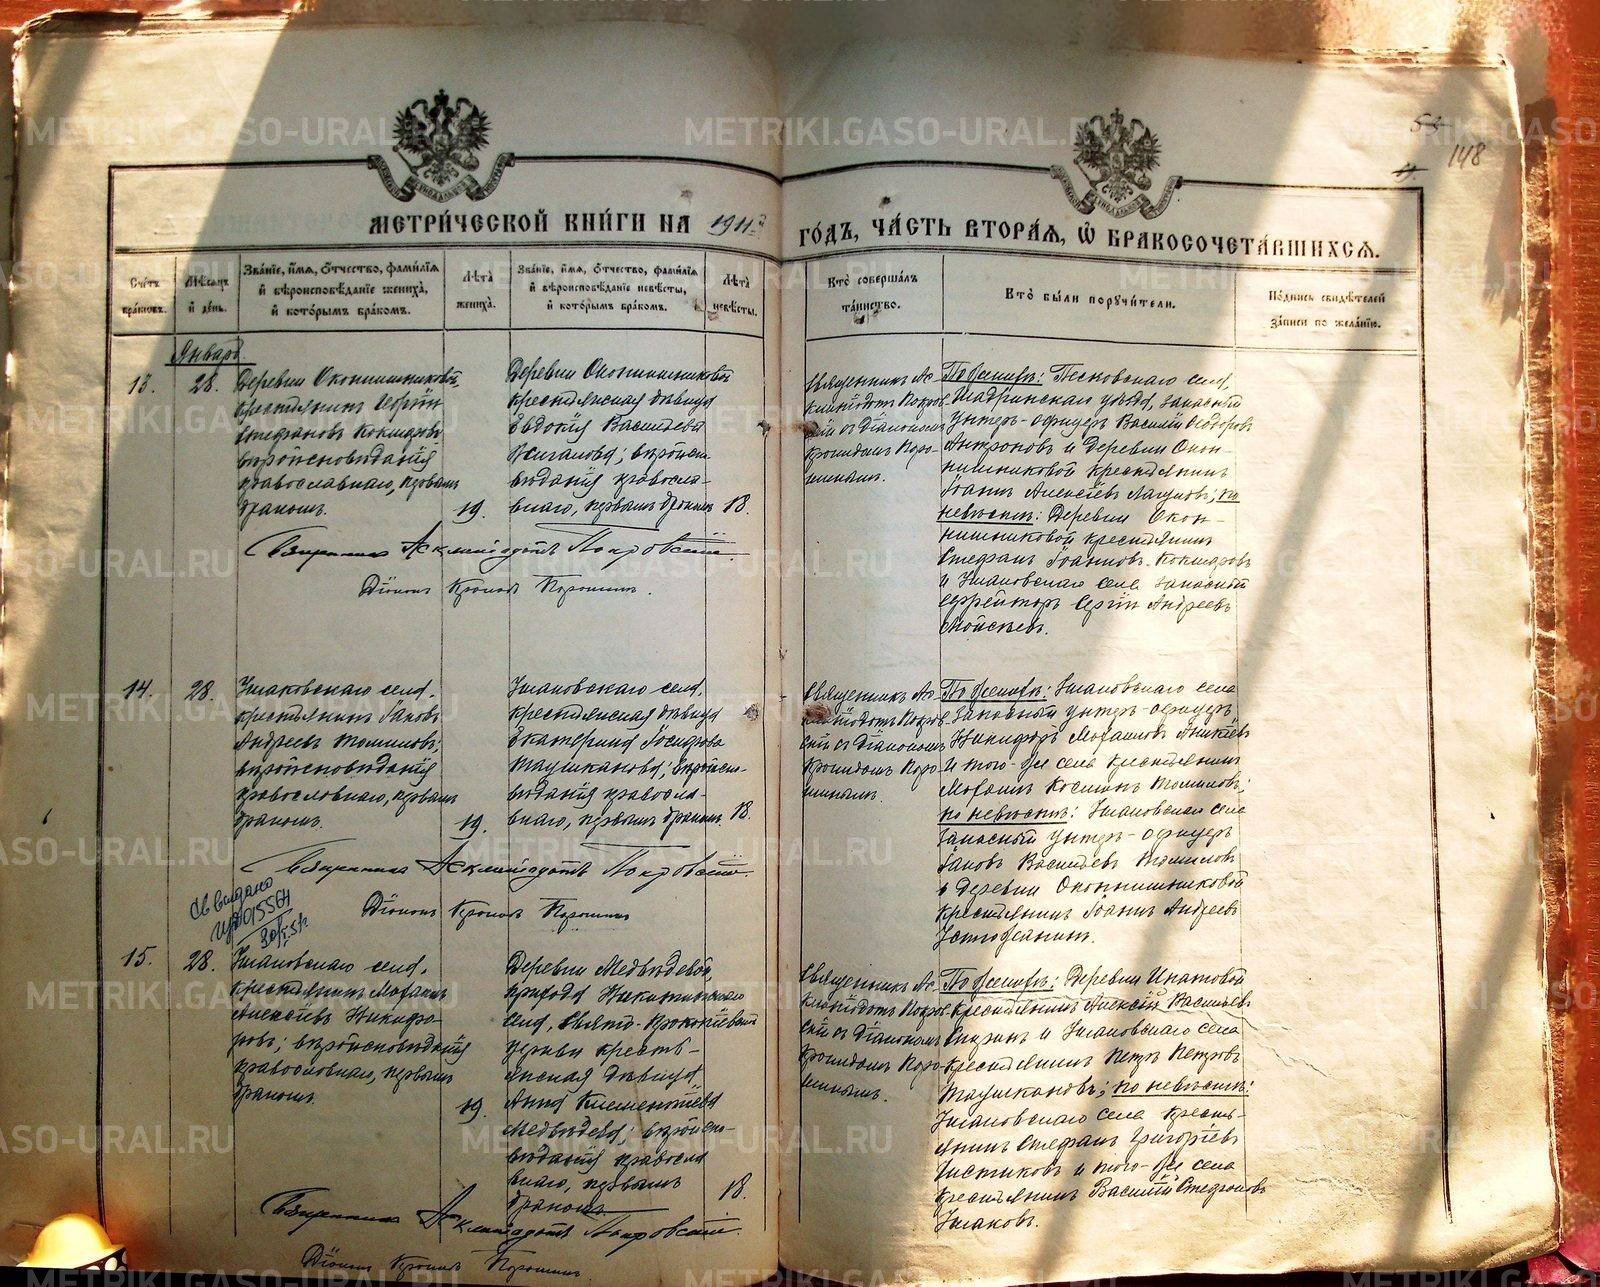 МЕТРИ́ЧЕСКОЙ КНИ́ГИ НА 1913
ГО́ДЪ, ЧА́СТЬ ВТОРА́Я, Ѽ БРАКОСОЧЕТА́ВШИХСЯ.
148
Сче́тъ бра́ковъ.
Мѣсяцъ и де́нь.
Зва́ніе, и́мя, о́тчество, фами́лія
и вѣроисповѣ́даніе жениха̀,
и кото́рымъ бра́комъ.
Лѣта̀
жениха̀.
Зва́ніе, и́мя, о́тчество, фами́лія
и вѣроисповѣ́даніе невѣ́сты,
и кото́рымъ бра́комъ.
Лѣта̀
невѣ́сты.
Кто̀ соверша́лъ
та́инство.
Кто̀ бы́ли поручи́тели.
По́дпись свидѣ́телей
за́писи по жела́нію.
Январь
13.
28.
Деревни Оконишниковой,
крестьянинъ Сергій
Стефановъ Кокшаровъ
вѣроисповѣданія
православнаго, первымъ
бракомъ.
19.
Деревни Оконишниковой
крестьянская дѣвица
Евдокія Васильева
Жиганова; вѣроиспо-
вѣданія правосла-
внаго, первымъ бракомъ
18.
Священникъ Ас-
клипіодотъ Покров-
скій съ Діакономъ
Кронидомъ Поро-
шинымъ.
По женихѣ: Песковскаго села,
Шадринскаго уѣзда, запасный
унтеръ-офицеръ Василій Ѳеодоровъ
Антроповъ и деревни Окон-
нишниковой крестьянинъ
Іоаннъ Алексѣевъ; по
невѣстѣ: Деревни Окон-
нишниковой крестьянинъ
Стефанъ Іоанновъ Кокшаровъ
и Ушаковскаго села запасный
ефрейторъ Сергій Андреевъ
Моисѣевъ.
Священникъ Асклипіодотъ Покровскій.
Діаконъ Кронидъ Порошинъ.
14.
28.
Ушаковскаго села,
крестьянинъ Іаковъ
Андреевъ Томиловъ;
вѣроисповѣданія
православнаго, первымъ
бракомъ.
19.
Ушаковскаго села,
крестьянская дѣвица
Екатерина Іосифова
Таушканова; вѣроиспо-
вѣданія правосла-
внаго, первымъ бракомъ.
18.
Священникъ Ас-
клипіодотъ Покров-
скій съ Діакономъ
Кронидомъ Поро-
шинымъ.
По женихѣ: Ушаковскаго села
запасный унтеръ-офицеръ
Никифоръ Михаиловъ Аникіевъ
и того-же села крестьянинъ
Михаилъ Косминъ Томиловъ;
по невѣстѣ: Ушаковскаго села
запасный унтеръ-офицеръ
Іаковъ Васильевъ Томиловъ
и деревни Оконнишниковой
крестьянинъ Іоаннъ Андреевъ
Устюжанинъ.
Священникъ Асклипіодотъ Покровскій.
Діаконъ Кронидъ Порошинъ
15.
28.
Ушаковскаго села,
крестьянинъ Михаилъ
Алексѣевъ Никифо-
ровъ; вѣроисповѣданія
православнаго, первымъ
бракомъ.
19.
Деревни Медвѣдевой,
прихода Никитинскаго
села, Свято-Прокопіевской
церкви кресть-
янская дѣвица
Анна Климентіева
Медвѣдева; вѣроиспо-
вѣданія правосла
внаго, первымъ
бракомъ.
18.
Священникъ Ас-
клипіодотъ Покров-
скій съ Діакономъ
Кронидомъ Поро-
шинымъ.
По женихѣ: Деревни Ипатовой
крестьянинъ Алексѣй Васильевъ
и Ушаковскаго села
крестьянинъ Петръ Петровъ
Таушкановъ; по невѣстѣ:
Ушаковскаго села кресть-
янинъ Стефанъ Григоріевъ
Чистяковъ и того-же села
крестьянинъ Василій Стефановъ
Ушаковъ.
Священникъ Асклипіодотъ Покровскій.
Діаконъ Кронидъ Порошинъ.
METRIKI.GASO-URAL.RU